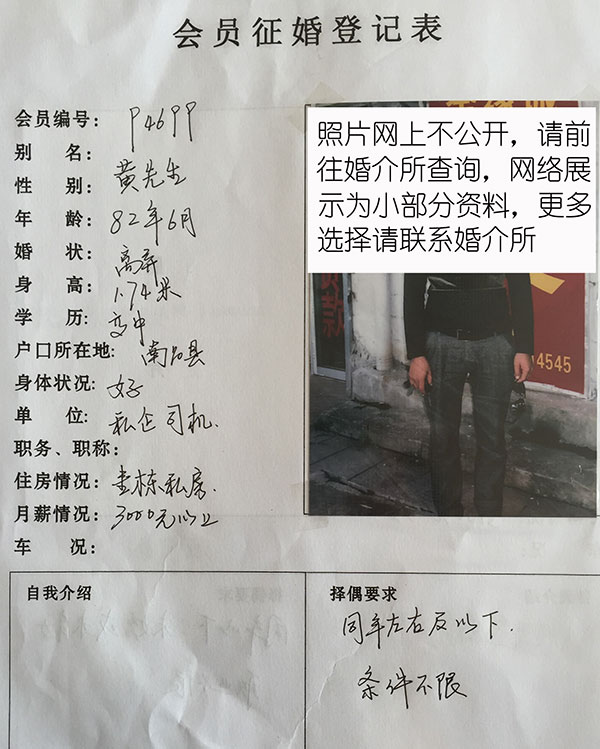 会员征婚登记表
会员编号: P4699
别 名:
性 别: 黄先生
年 龄: 82年6月
婚 状: 离异
身 高: 1.74米
学 历: 高中
户口所在地: 南昌县
身体状况: 好
单 位: 私企司机.
职务、职称:
住房情况: 整栋私房.
月薪情况: 3000元以上
车 况:
照片网上不公开，请前
往婚介所查询，网络展
示为小部分资料，更多
选择请联系婚介所
款
4545
自我介绍
择偶要求
同年左右及以下.
条件不限